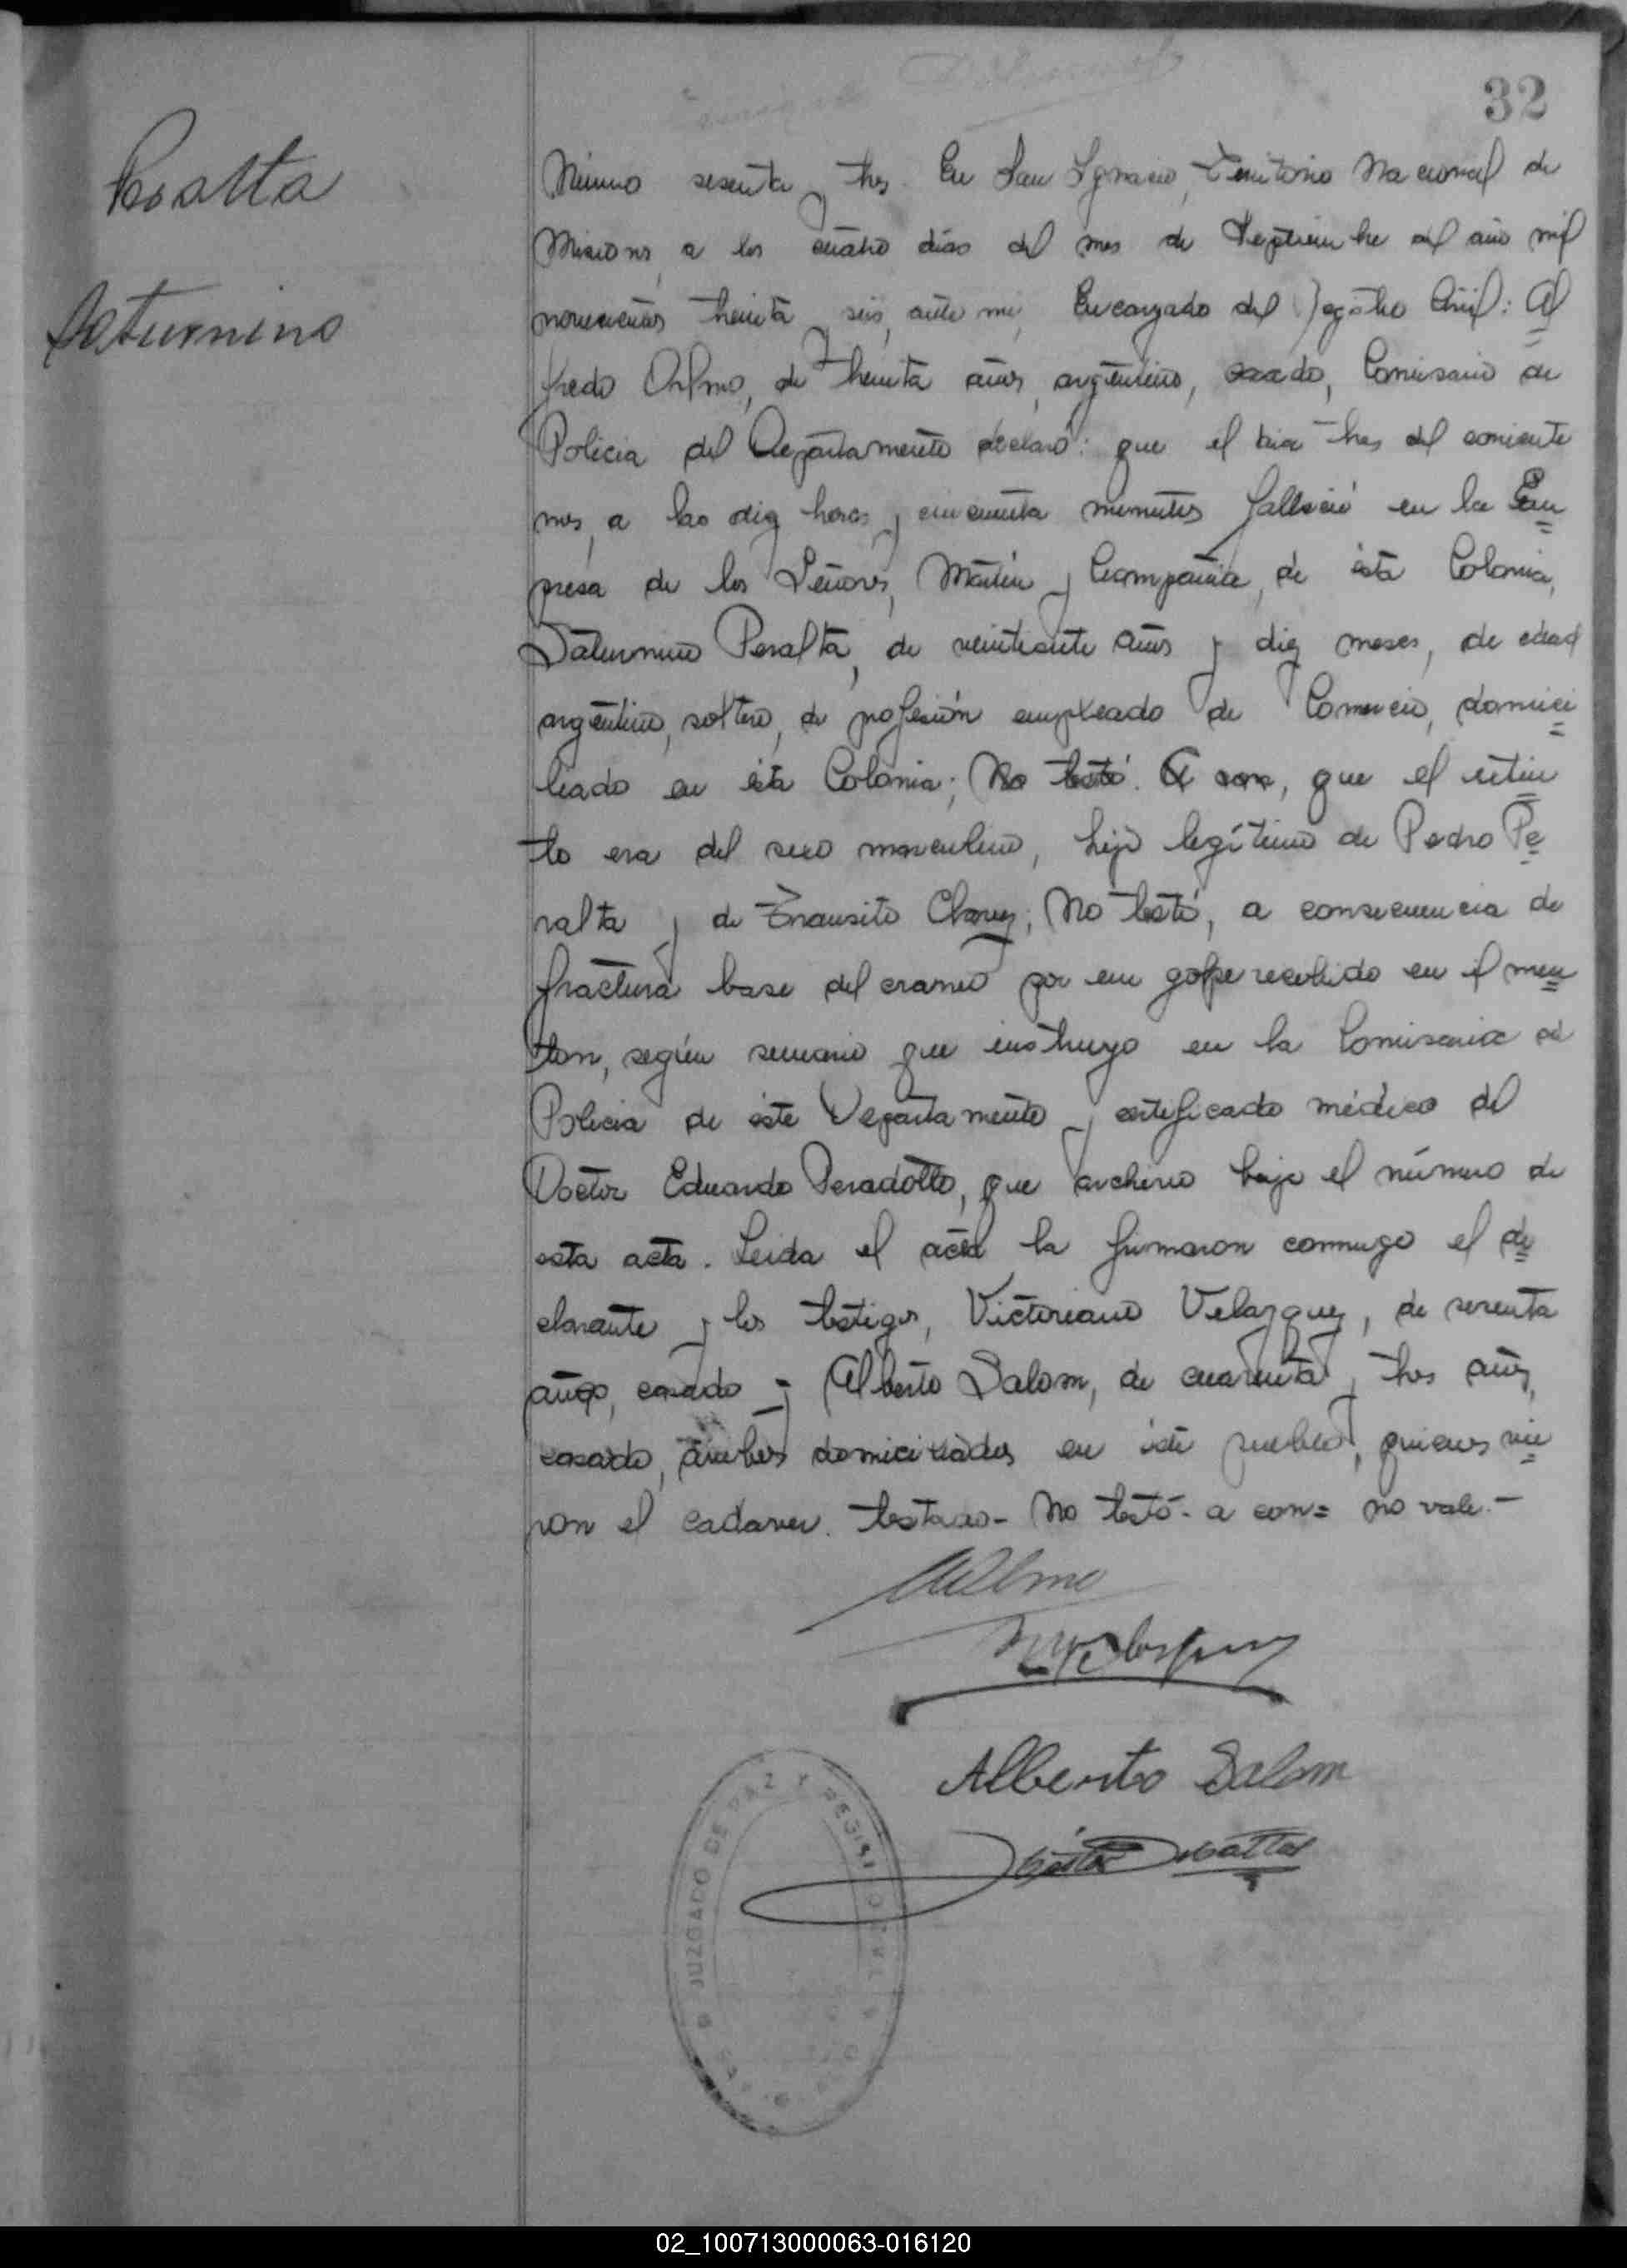 32
Peralta
Saturnino
Número sesenta y tres. En San Ignacio, Territorio Nacional de
Misiones, a los cuatro dias del mes de Septiembre del año mil
novecientos treinta y seis, ante mi, Encargado del Registro Civil: Al
fredo Olmo, de treinta años, argentino, casado, Comisario de
Policia del Departamento declaró: que el dia tres del corriente
mes, a las diez horas y cincuenta minutos falleció en la Em
presa de los Señores, Martin y Compañia, de ésta Colonia,
Saturnino Peralta, de veintisiete años y diez meses, de edad
argentino, soltero, de profesión empleado de Comercio, domici
liado en ésta Colonia; No testó. A con, que el extin
to era del sexo masculino, hijo legítimo de Pedro Pe
ralta y de Transito Chavez; No testó, a consecuencia de
fractura base del craneo por un golpe recibido en el men
ton, según sumario que instruyo en la Comisaria de
Policia de éste Departamento y certificado médico del
Doctor Eduardo Peradotto, que archivo bajo el número de
esta acta. Leida el acta la firmaron conmigo el de
clarante y los testigos, Victoriano Velazquez, de sesenta
años, casado y Alberto Salom, de cuarenta y tres años,
casado, ámbos domiciliados en éste pueblo, quienes vie
ron el cadaver. testado - No testó - a con = no vale. -
Alberto Salom
JUZGADO DE PAZ Y REGISTRO CIVIL
02_100713000063-016120